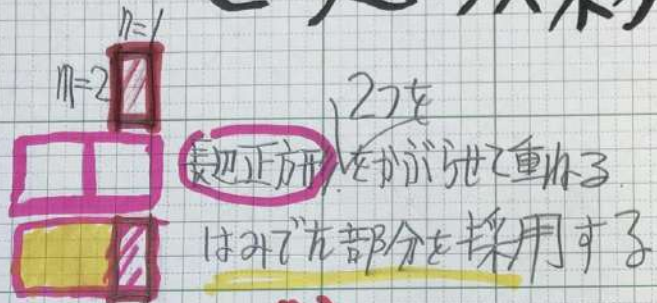 n=1
n=2
2つを
長辺正方形をかぶらせて重ねる
はみでた部分を採用する